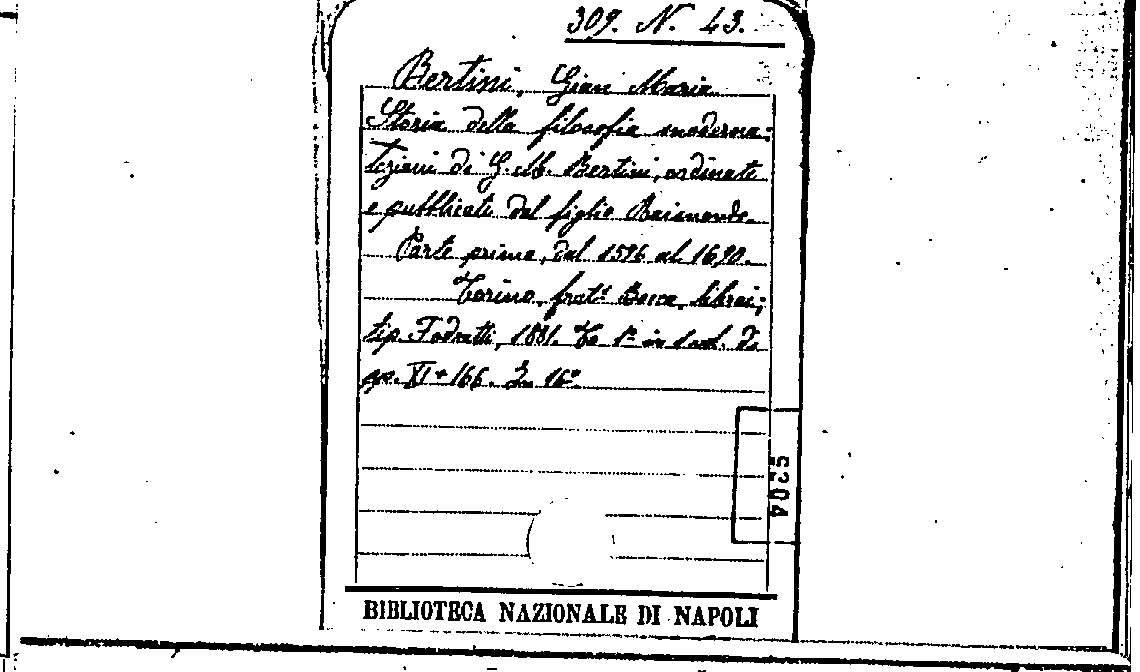 309. N. 43.
Bertini, Gian Maria
Storia della filosofia moderna:
lezioni di G. M. Bertini, ordinate
e pubblicate dal figlio Raimondo.
Parte prima, dal 1596 al 1690.
Torino, frat.i Bocca, librai;
tip. Fodratti, 1881. To 1° in 1 vol. di
pp. XI + 166. In 16°.
5204
BIBLIOTECA NAZIONALE DI NAPOLI